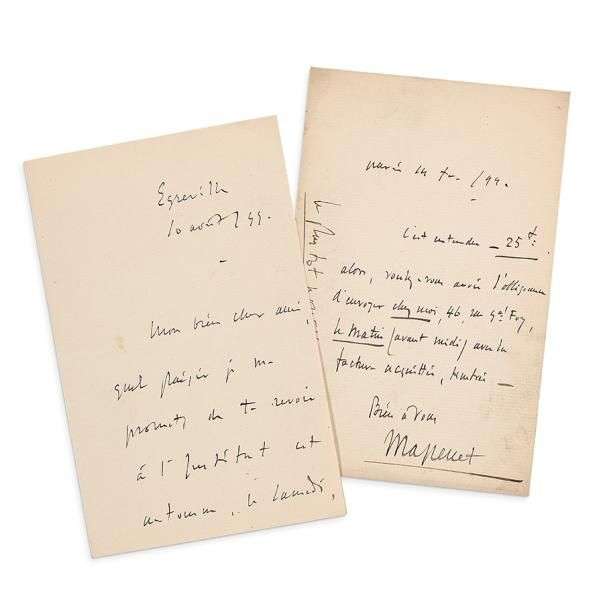 Egreville
10 août / 99.
Mon bien cher ami,
quel plaisir je me
promets de te revoir
à l'Institut cet
automne, le samedi,
le plus tôt
paris / 99.
C'est entendu – 25 f.
alors, voulez-vous avoir l'obligeance
d'envoyer chez moi, 46, rue Gal Foy,
le matin (avant midi) avec la
facture acquittée,
Bien à vous
Massenet